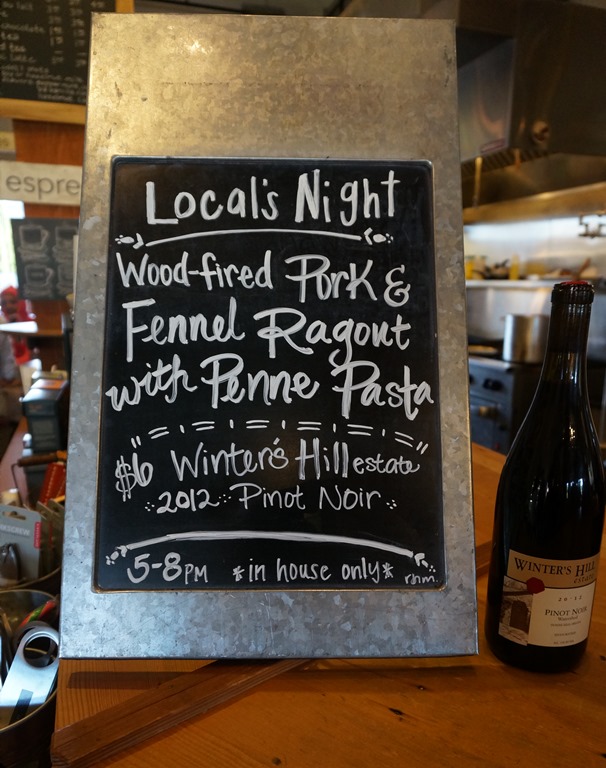 espre
Local's Night
Wood-fired Pork &
Fennel Ragout
with Penne Pasta
$6 Winter's Hill estate
2012 Pinot Noir
5-8PM *in house only*
WINTER'S HILL
ESTATE
2012
PINOT NOIR